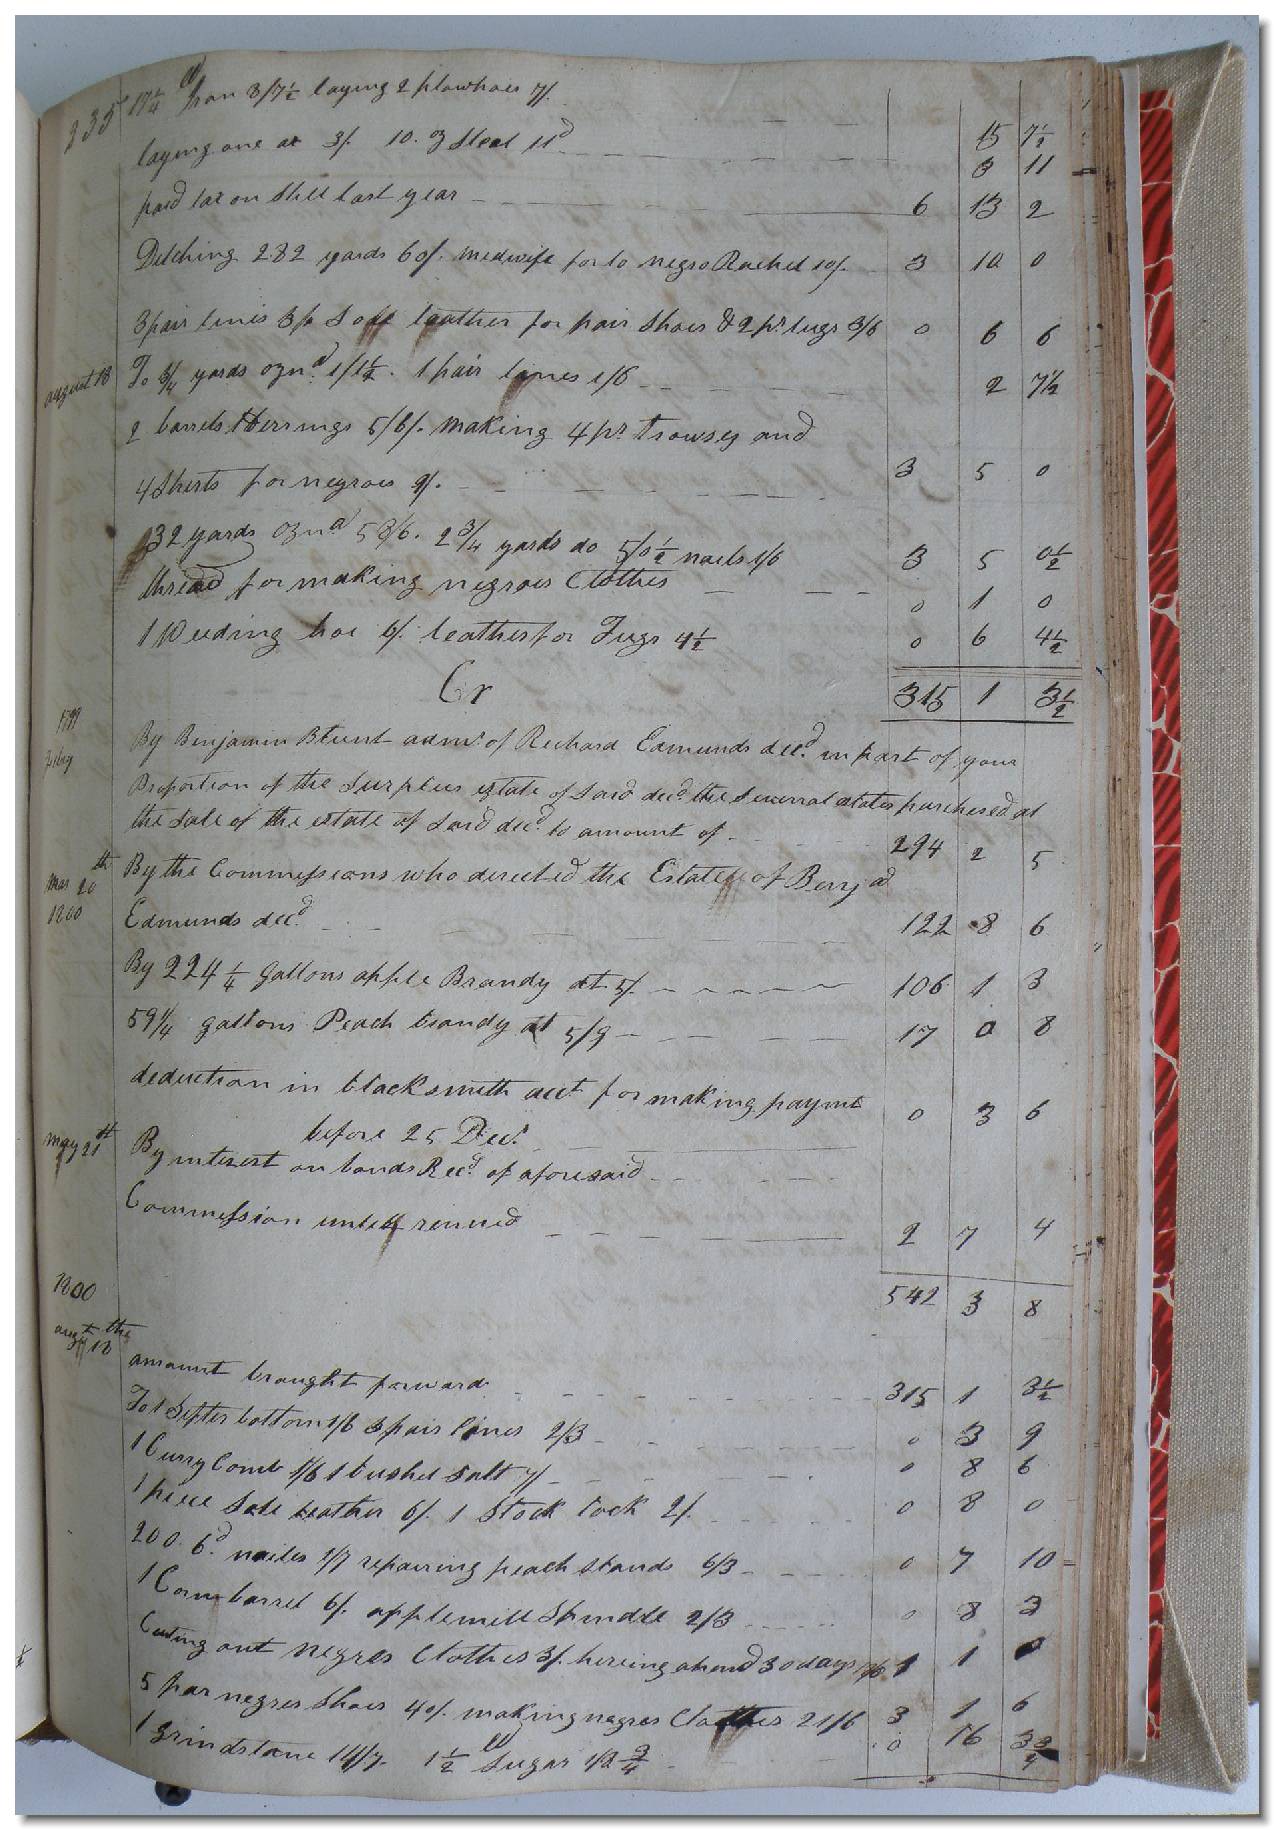 335 17 1/4 lb Iron 8/7 1/2 laying 2 plowhoes 7/. 15 7 1/2
laying one at 3/. 10. oz Steal 11d 3 11
paid tax on Still last year 6 13 2
Ditching 282 yards 60/. Medwife for to negro Rachel 10/. 3 10 0
3 pair lines 3/ Sole leather for pair Shoes & 2 pr. tugs 3/6 0 6 6
august 18 To 3/4 yards oznd. 1/1 1/2. 1 pair lines 1/6 2 7 1/2
2 barrels Herrings 56/. Making 4 pr. Trowses and
4 Sherts for negroes 9/. 3 5 0
32 yards oznd 58/6. 2 3/4 yards do 5/0 1/2 nails 1/6 3 5 0 1/2
thread for making negroes Clothes 0 1 0
1 Weeding hoe 6/. leather for Tugs 4 1/2 0 6 4 1/2
Cr 315 1 3 1/2
1799
By Benjamin Blunt admr. of Richard Edmunds decd. in part of your
Proportion of the Surplus estate of Said decd. the Several articles purchased at
the Sale of the estate of Said decd. to amount of 294 2 5
Mar 20th By the Commissions who directed the Estate of Benja
1800 Edmunds decd. 122 8 6
By 224 1/4 gallons apple Brandy at 5/. 106 1 3
59 1/4 gallons Peach brandy at 5/9 17 0 8
deduction in blacksmith acct for making paymt 0 3 6
before 25 Decr.
may 21th By interest on bonds Recd. of aforesaid
Commission untill renewed 2 7 4
1800 542 3 8
augt 18 the
amount brought forward 315 1 3 1/2
To 1 Sifter bottom 1/6 3 pair lines 2/3 0 3 9
1 Curry Comb 1/6 1 bushel Salt 7/. 0 8 6
1 piece Sole leather 6/. 1 Stock lock 2/. 0 8 0
200. 6d. nailes 1/7 repairing peach stands 6/3 0 7 10
1 Corn barrel 6/. applemill Spindle 2/3 0 8 3
Cuting out negros Clothes 3/. hireing a hand 30 days 1 1 0
5 par negros Shoes 40/. making negros Clothes 21/6 3 1 6
1 grindstone 14/7. 1 1/2 lb Sugar 1/8 3/4 0 16 3 3/4